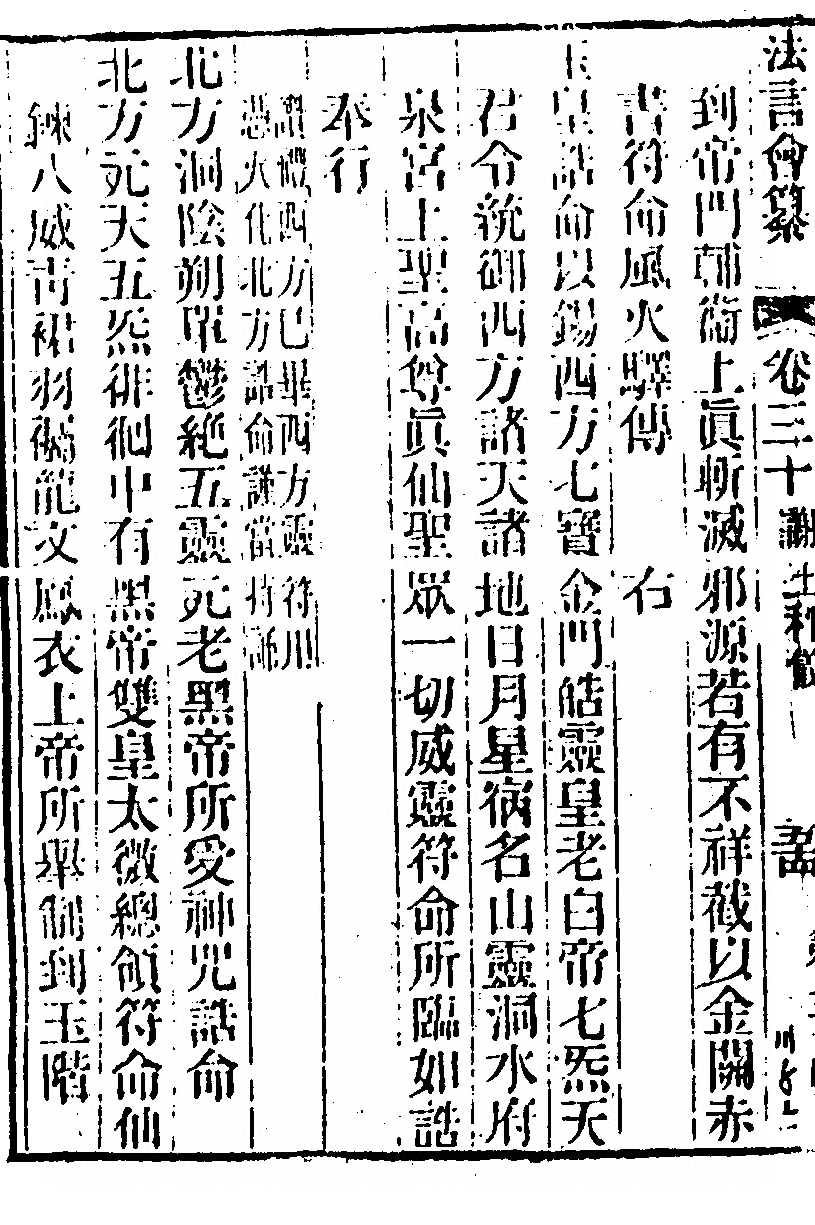 法言會纂 卷三十 謝土科儀 誥
到帝門輔衞上眞斬滅邪源若有不祥截以金關赤
書符命風火驛傳 右
玉皇誥命以錫西方七寶金門皓靈皇老白帝七炁天
君令統御西方諸天諸地日月星宿名山靈洞水府
泉宮上聖高尊眞仙聖眾一切威靈符命所臨如誥
奉行
讃禮西方已畢西方靈符用
慿火化北方誥命謹當持誦
北方洞陰朔單鬱絶五靈玄老黑帝所受神咒誥命
北方玄天五炁徘徊中有黑帝雙皇太微總領符命仙
錬八威靑裙羽襦龍文鳳衣上帝所舉制到玉階